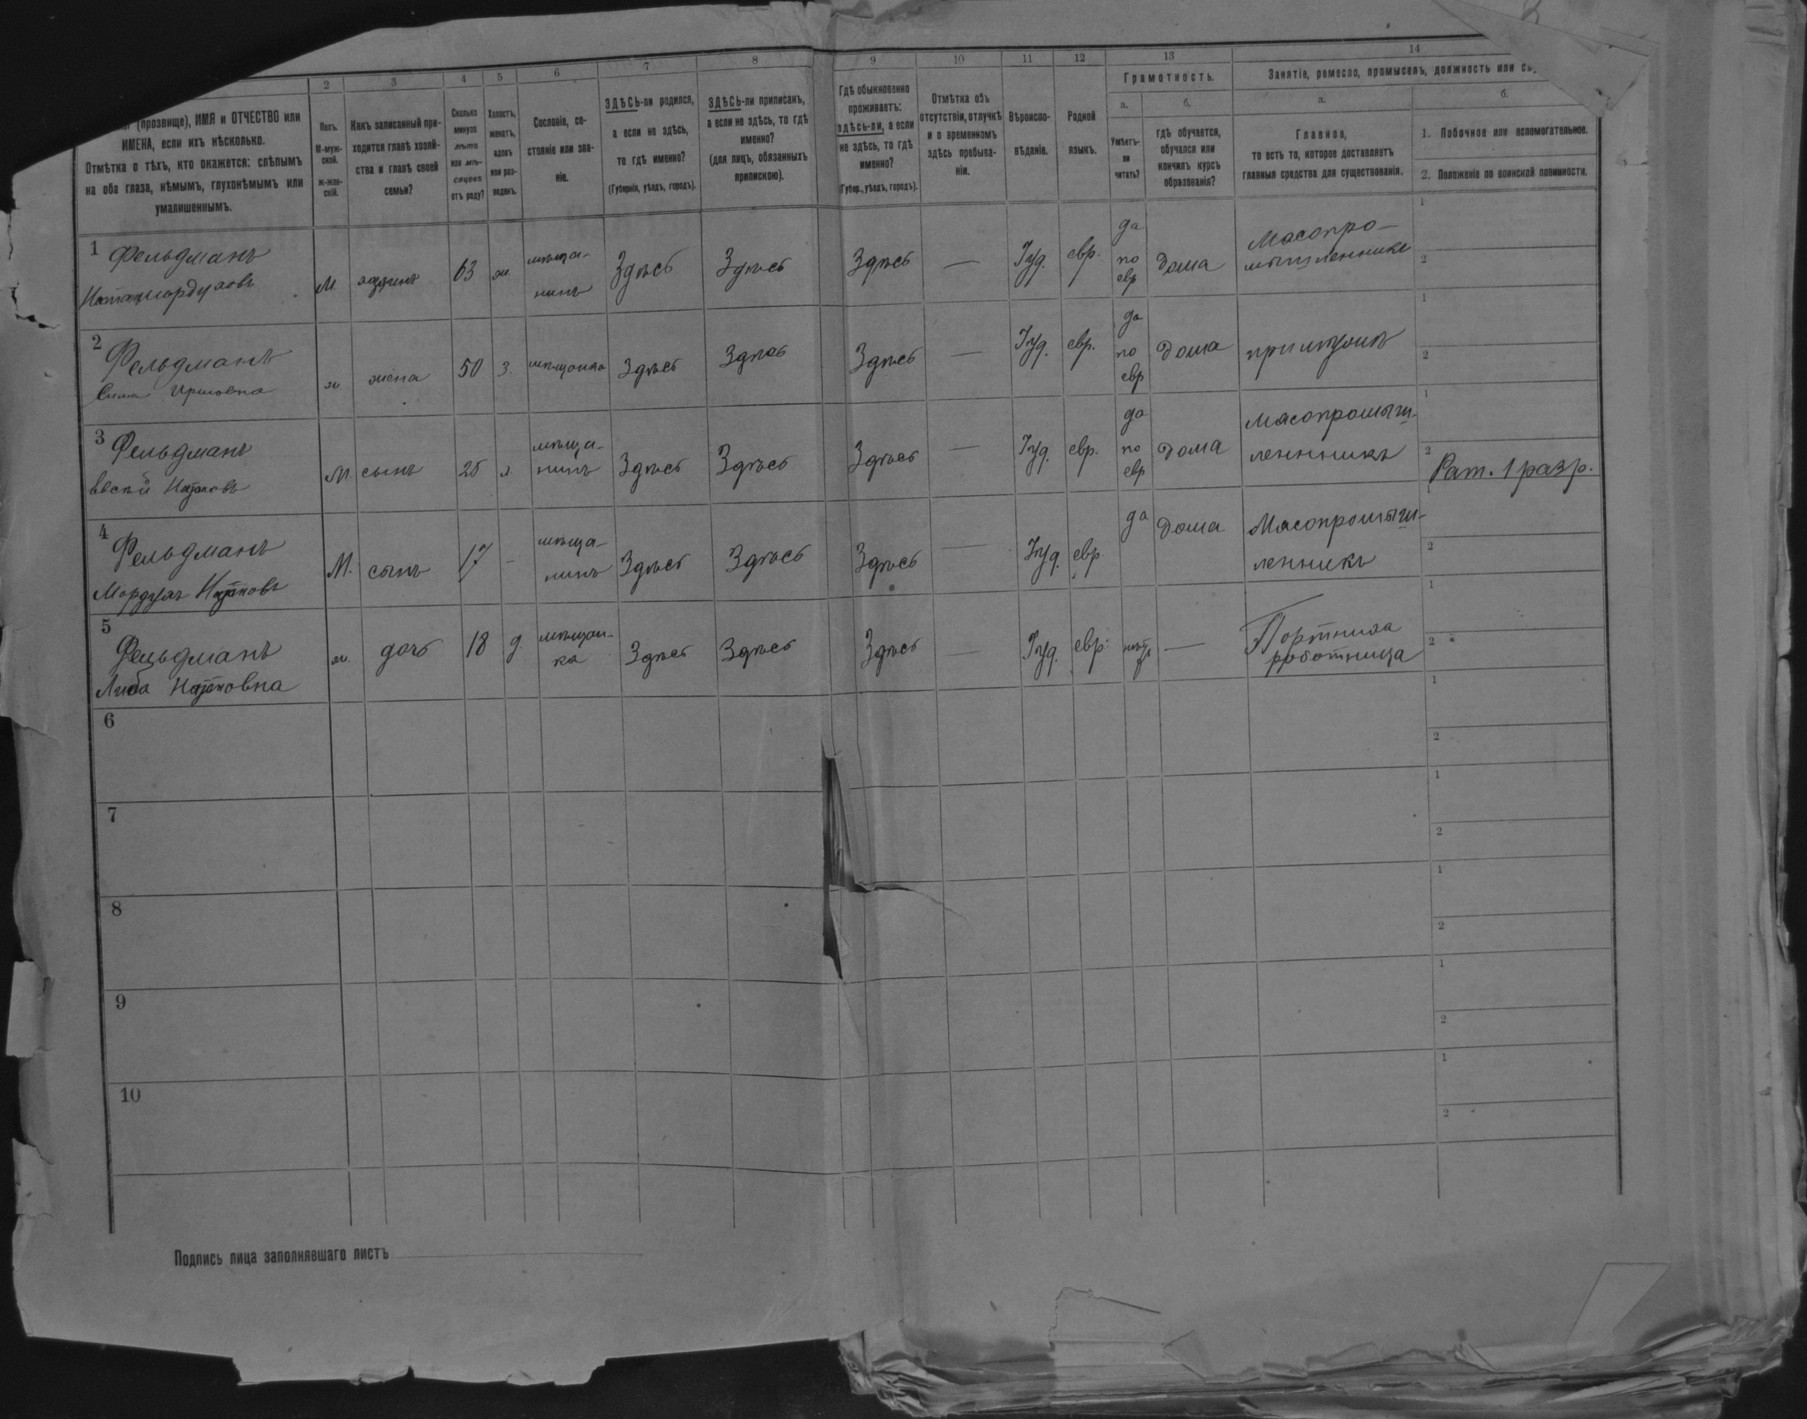 2
3
4
5
6
7
8
9
10
11
12
13
14
(прозвище), ИМЯ и ОТЧЕСТВО или
ИМЕНА, если ихъ нѣсколько.
Отмѣтка о тѣхъ, кто окажется: слѣпымъ
на оба глаза, нѣмымъ, глухонѣмымъ или
умалишеннымъ.
Полъ.
М-муж-
ской.
Ж-жен-
скій.
Какъ записанный при-
ходится главѣ хозяй-
ства и главѣ своей
семьи?
Сколько
минуло
лѣтъ
или мѣ-
сяцевъ
отъ роду?
Холостъ,
женатъ,
вдовъ
или раз-
веденъ.
Сословіе, со-
стояніе или зва-
ніе.
ЗДѢСЬ-ли родился,
а если не здѣсь,
то гдѣ именно?
(Губернія, уѣздъ, городъ).
ЗДѢСЬ-ли приписанъ,
а если не здѣсь, то гдѣ
именно?
(для лицъ, обязанныхъ
припискою).
Гдѣ обыкновенно
проживаетъ:
здѣсь-ли, а если
не здѣсь, то гдѣ
именно?
(Губер., уѣздъ, городъ).
Отмѣтка объ
отсутствіи, отлучкѣ
и о временномъ
здѣсь пребыва-
ніи.
Вѣроиспо-
вѣданіе.
Родной
языкъ.
Грамотность.
а.
Умѣетъ-
ли
читать?
б.
гдѣ обучается,
обучался или
кончилъ курсъ
образованія?
Занятіе, ремесло, промыселъ, должность или
а.
Главное,
то есть то, которое доставляетъ
главныя средства для существованія.
б.
1. Побочное или вспомогательное.
2. Положеніе по воинской повинности.
1 Фельдманъ
М. 63 ж. мѣща-
нинъ Здѣсь Здѣсь Здѣсь — Іуд. евр. да
по
евр дома Мясопро-
мышленникъ
1
2
2 Фельдманъ
ж. жена 50 З. мѣщанка Здѣсь Здѣсь Здѣсь — Іуд. евр. да
по
евр дома при мужѣ
1
2
3 Фельдманъ
М. сынъ 25 х. мѣща-
нинъ Здѣсь Здѣсь Здѣсь — Іуд. евр. да
по
евр дома мясопромыш-
ленникъ
1
2
Рат. 1 разр.
4 Фельдманъ
Мордухъ
М. сынъ 17 - мѣща-
нинъ Здѣсь Здѣсь Здѣсь — Іуд. евр. да дома Мясопромыш-
ленникъ
1
2
5 Фельдманъ
Либа
ж. дочь 18 д. мѣщан-
ка Здѣсь Здѣсь Здѣсь — Іуд. евр. — Портниха
работница
1
2
6
1
2
7
1
2
8
1
2
9
1
2
10
1
2
Подпись лица заполнявшаго листъ